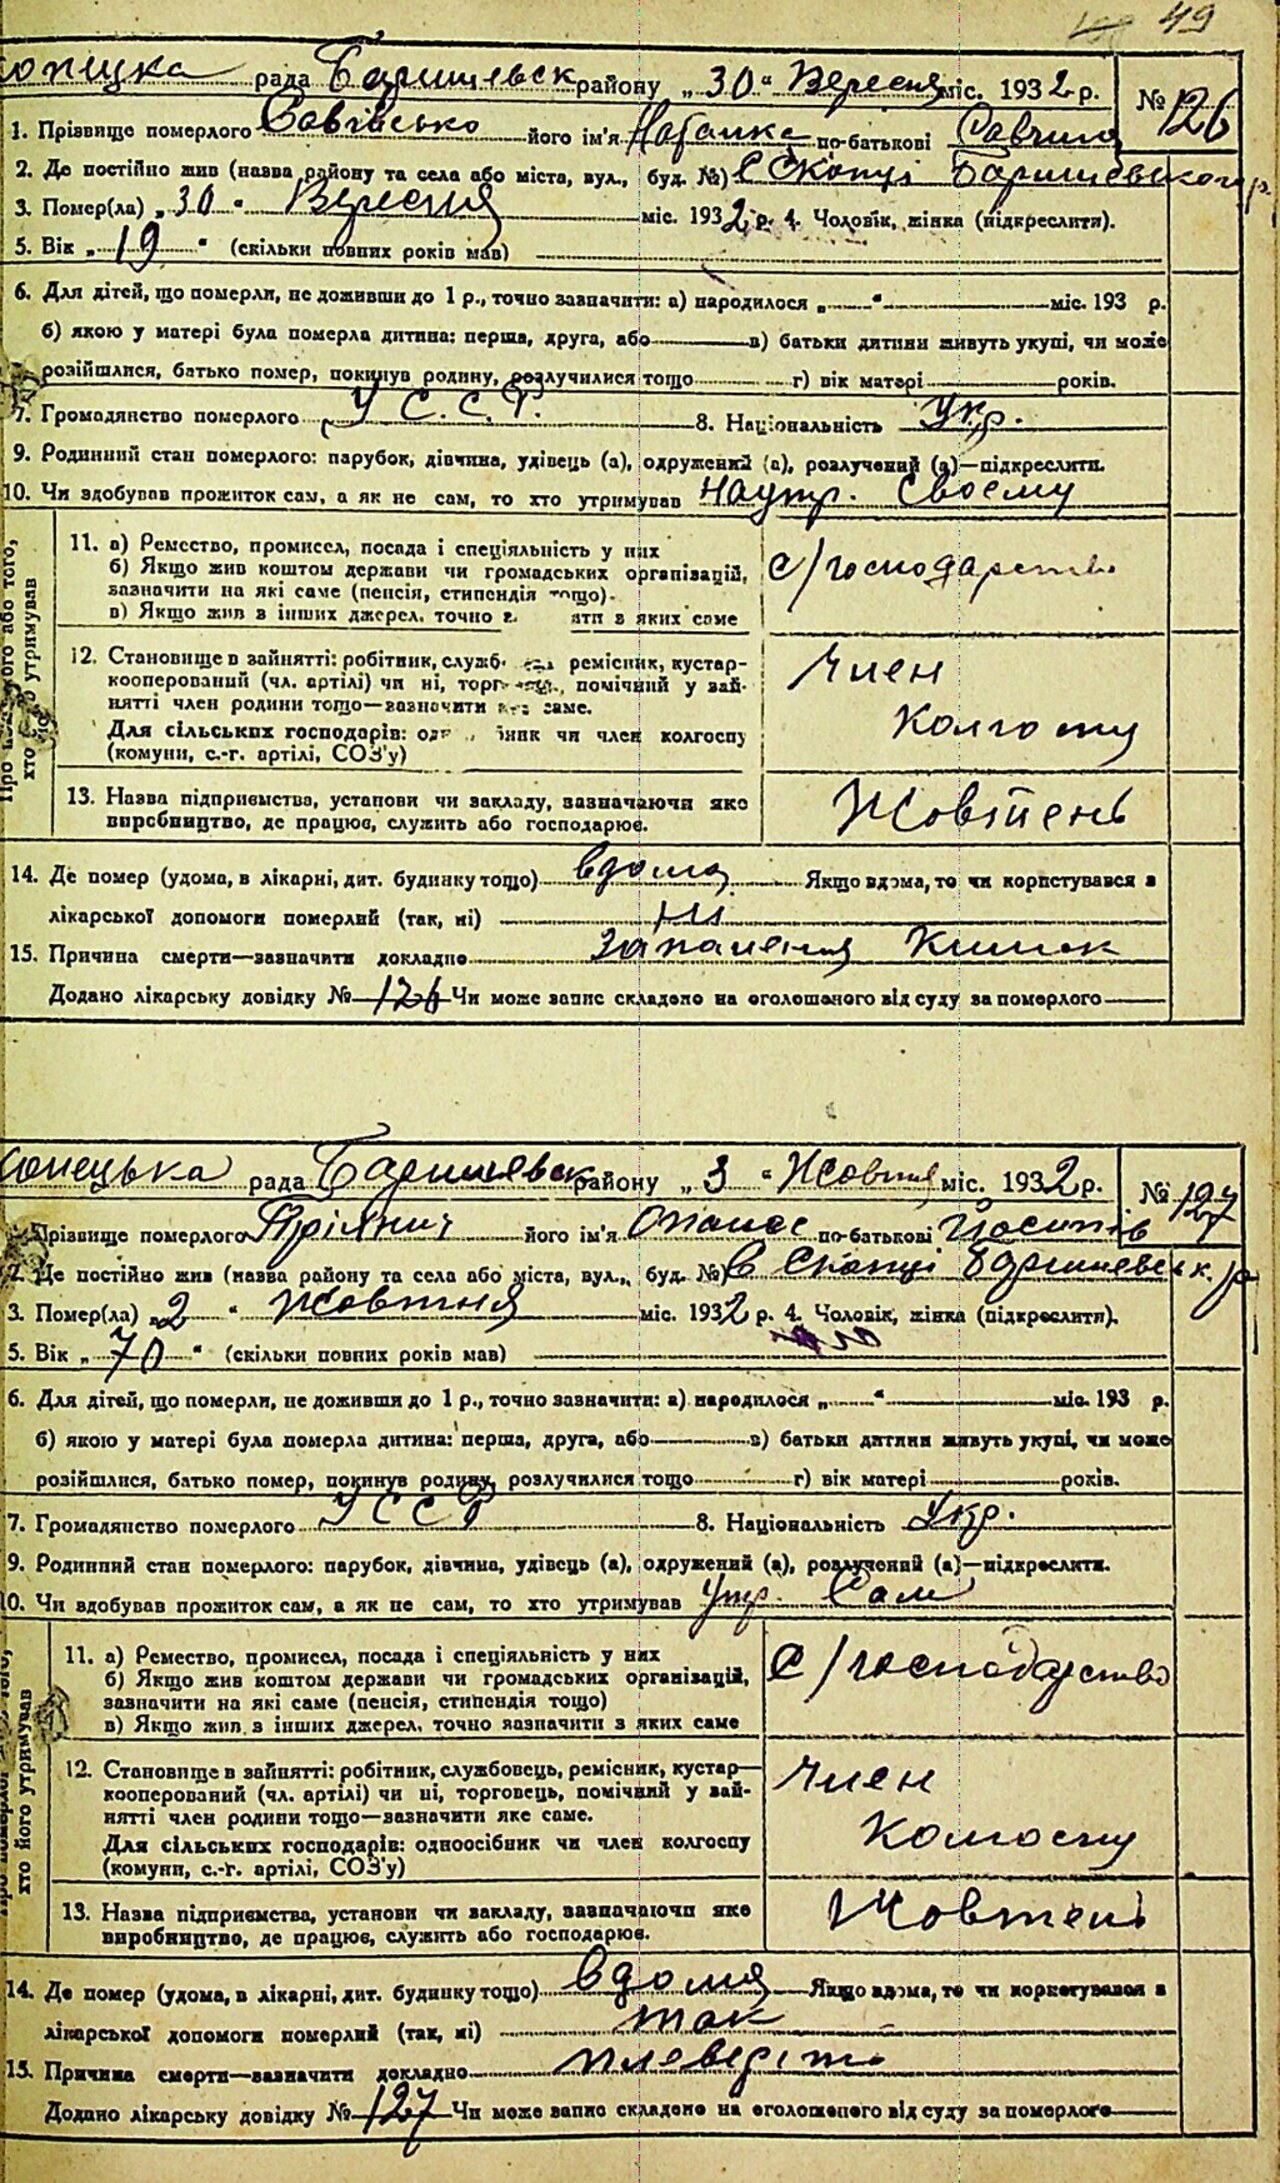 49
рада Баришевськ району „30“ Вересня міс. 1932 р. № 126
1. Прізвище померлого його ім'я по-батькові
2. Де постійно жив (назва району та села або міста, вул., буд. №) с Скопці Баришевского р.
3. Помер(ла) „30“ Вересня міс. 1932 р. 4. Чоловік, жінка (підкреслити).
5. Вік „19“ (скільки повних років мав)
6. Для дітей, що померли, не доживши до 1 р., точно зазначити: а) народилося „ “ міс. 193 р.
б) якою у матері була померла дитина: перша, друга, або в) батьки дитини живуть укупі, чи може
розійшлися, батько помер, покинув родину, розлучилися тощо г) вік матері років.
7. Громадянство померлого У С. С. Р. 8. Національність Укр.
9. Родинний стан померлого: парубок, дівчина, удівець (а), одружений (а), розлучений (а)—підкреслити.
10. Чи здобував прожиток сам, а як не сам, то хто утримував На утр. своему
11. а) Ремество, промисел, посада і спеціяльність у них
б) Якщо жив коштом держави чи громадських організацій,
зазначити на які саме (пенсія, стипендія тощо).
в) Якщо жив з інших джерел, точно з яких саме
с/господарство
12. Становище в зайнятті: робітник, служб ремісник, кустар-
кооперований (чл. артілі) чи ні, торг помічний у зай-
нятті член родини тощо—зазначити яке саме.
Для сільських господарів: чи член колгоспу
(комуни, с.-г. артілі, СОЗ'у)
Член
Колгоспу
13. Назва підприємства, установи чи закладу, зазначаючи яке
виробництво, де працює, служить або господарює.
Жовтень
14. Де помер (удома, в лікарні, дит. будинку тощо) вдома Якщо вдома, то чи користувався з
лікарської допомоги померлий (так, ні) ні
15. Причина смерти—зазначити докладно Запалення Кишок
Додано лікарську довідку № 126 Чи може запис складено на оголошеного від суду за померлого
рада Баришевськ району „3“ Жовтня міс. 1932 р. № 127
Прізвище померлого його ім'я Опанас по-батькові Йосипів
2. Де постійно жив (назва району та села або міста, вул., буд. №) с Скопці Баришевськ. р
3. Помер(ла) „2“ Жовтня міс. 1932 р. 4. Чоловік, жінка (підкреслити).
5. Вік „70“ (скільки повних років мав)
6. Для дітей, що померли, не доживши до 1 р., точно зазначити: а) народилося „ “ міс. 193 р.
б) якою у матері була померла дитина: перша, друга, або в) батьки дитини живуть укупі, чи може
розійшлися, батько помер, покинув родину, розлучилися тощо г) вік матері років.
7. Громадянство померлого У С С Р 8. Національність Укр.
9. Родинний стан померлого: парубок, дівчина, удівець (а), одружений (а), розлучений (а)—підкреслити.
10. Чи здобував прожиток сам, а як не сам, то хто утримував Утр. Сам
хто його утримував
11. а) Ремество, промисел, посада і спеціяльність у них
б) Якщо жив коштом держави чи громадських організацій,
зазначити на які саме (пенсія, стипендія тощо)
в) Якщо жив з інших джерел, точно зазначити з яких саме
с/господарство
12. Становище в зайнятті: робітник, службовець, ремісник, кустар—
кооперований (чл. артілі) чи ні, торговець, помічний у зай-
нятті член родини тощо—зазначити яке саме.
Для сільських господарів: одноосібник чи член колгоспу
(комуни, с.-г. артілі, СОЗ'у)
Член
Колгоспу
13. Назва підприємства, установи чи закладу, зазначаючи яке
виробництво, де працює, служить або господарює.
Жовтень
14. Де помер (удома, в лікарні, дит. будинку тощо) вдома Якщо вдома, то чи користувався з
лікарської допомоги померлий (так, ні) так
15. Причина смерти—зазначити докладно плевріт
Додано лікарську довідку № 127 Чи може запис складено на оголошеного від суду за померлого